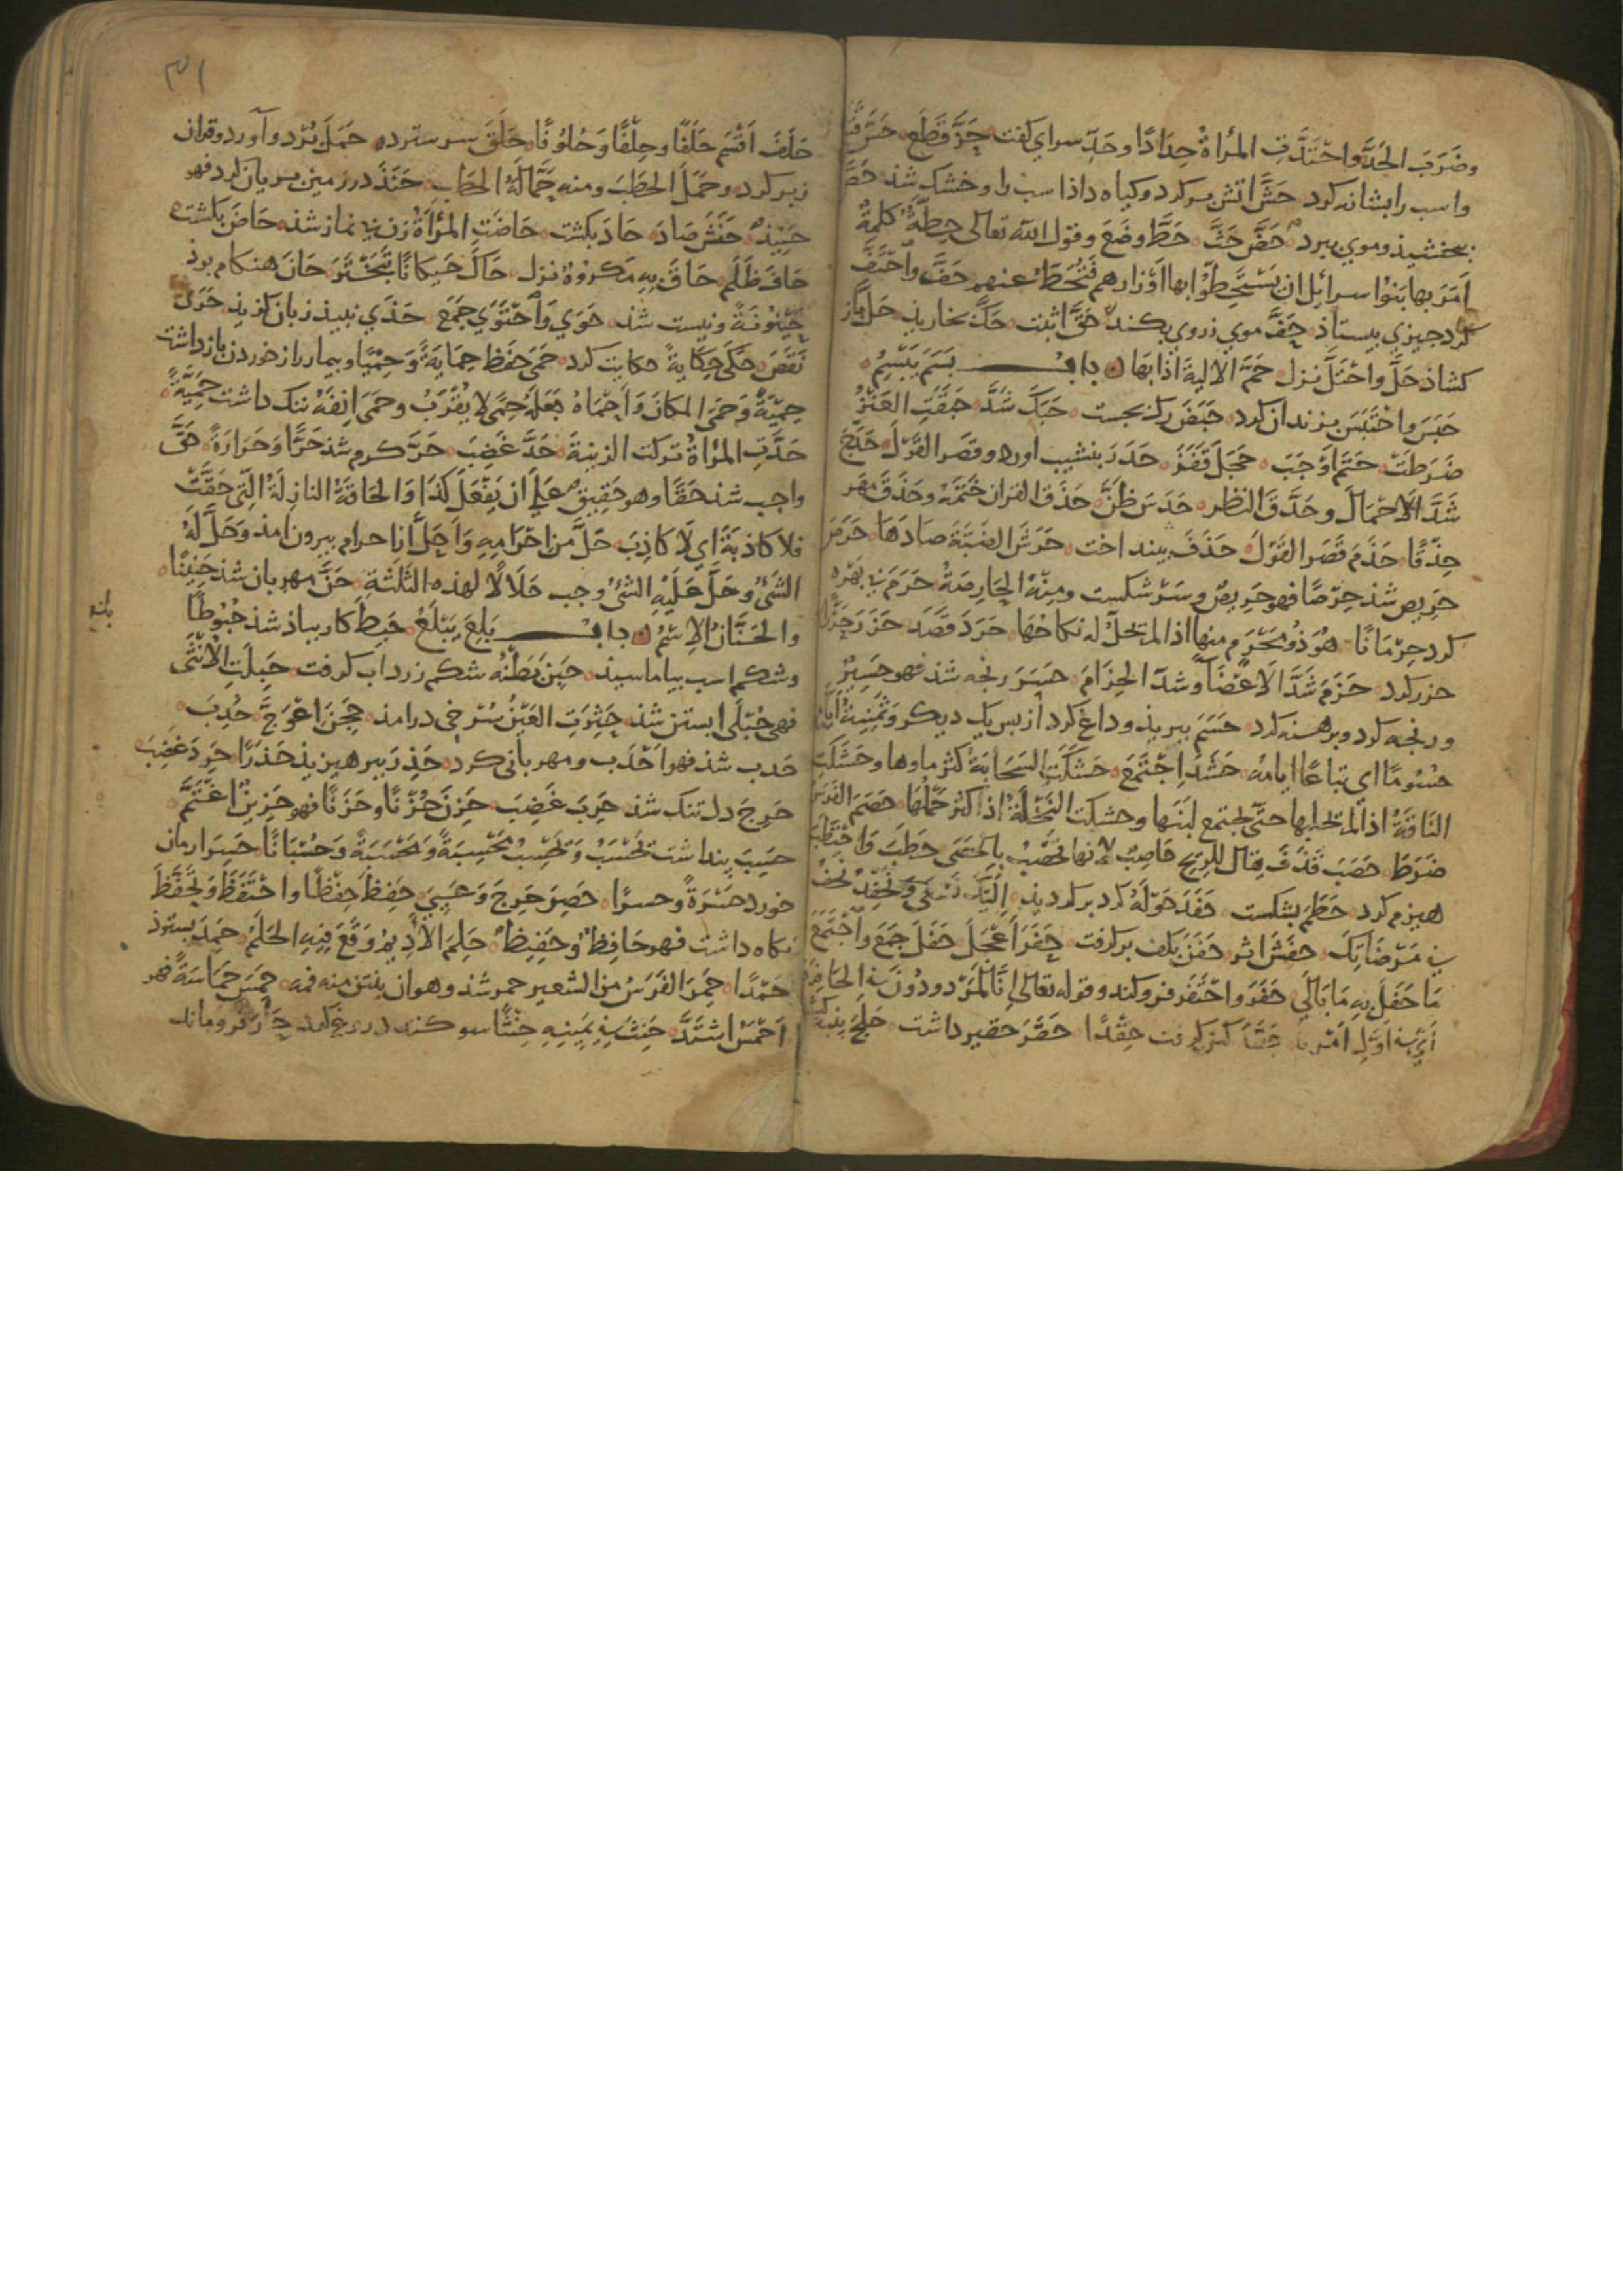 وضَرَبَ الحَدَّ واحْتَدَّتِ المرْاَةُ حِدَادًا وحَدِّ سرای کفت حَزَّ قَطَعَ
واسب را بشانه کرد حَشَّ اتش بر کرد وکیاه داذ اسب را وخشک شذ حَصَّ
ببخشیذ وموی ببرد حَضَّ حَثَّ حَطَّ وضَعَ وقول الله تعالى حِطَّةٌ كلمةٌ
اَمَرَ بها بَنُوْا سرائِل ان يَسْتَحِطُّوْا بها اَوْزارهم فَتُحَطُّ عنهم حَفَّ واحْتَفَّ
کرد چیزی بیستاذ حَفَّ موی ز روی بکند حَقَّ اثبت حَكَّ بخاریذ حَلَّ باز
کشاذ حَلَّ واحْتَلَّ نزل حَمَّ الالية اذابها باب بَسَمَ يَبْسِمُ
حَبَسَ واحْتَبَسَ بزندان کرد حَبَضَ رک بجست حَبَكَ شَدَّ حَبَقَتِ العَنْزُ
ضَرَطَتْ حَتَمَ اَوْجَبَ حَجَلَ قَفَزَ حَدَرَ بنشیب اورد وقصر القَوْلَ حَدَجَ
شَدَّ الاَحْمَالَ وحَدَّقَ النظر حَدَسَ ظَنَّ حَذَقَ القران خَتَمَهُ وحَذَقَ مَهَر
حِذْقًا حَذَمَ قَصَر القَوْلَ حَذَفَ بینداخت حَرَشَ الضَبَّةَ صَادَهَا حَرَصَ
حَرِیص شذ حِرْصًا فهو حَرِيصٌ وسَرْ شکست ومِنْهُ الحَارِصَةُ حَرَمَ بی بهره
کرد حِرْمَانًا هُوَ ذُوْ مَحْرَمٍ منها اذا لم تحلّ له نكاحُهَا حَرَدَ قَصَدَ حَزَرَ
حزر کرد حَزَمَ شَدَّ الاَعْضَآ وشدّ الحِزَامَ حَسَرَ رنجه شذ فهو حَسِيرٌ
ورنجه کرد وبرهنه کرد حَسَمَ ببریذ وداغ کرد از پس یک دیکر وَثَمٰنِيَةَ اَيَّام
حُسُومًا اي تِبَاعًا ايامه حَشَدَ اِجْتَمَعَ حَشَكَتِ السَحَابَةُ كثر ماوها وحَشَكَتِ
النَاقَةُ اذا لم تحلبها حتّى يجتمع لبَنَها وحشكت النَخْلَةُ اذا كثر حَمْلُهَا حَصَمَ الفَرَسُ
ضَرَطَ حَصَبَ قَذَفَ يقال للريح حَاصِبٌ لانها تَحْصِبُ بالحَصَى حَطَبَ واحْتَطَبَ
هیزم کرد حَطَمَ بشکست حَفَدَ حَوْلَهُ کرد بر کردیذ اِلَيْكَ نَسْعَى وَنَحْفِدُ
في مَرْضَاتِكَ حفَشَ اثر حَفَنَ بکف بر کرفت حَفَزَ اَعْجَلَ حَفَلَ جَمَعَ واجْتَمَعَ
مَا حَفَلَ بِهِ مَا بَالَى حَفَرَ واحْتَفَر فرو کند وقوله تعالى اِنَّا لَمَرْدودُوْنَ في الحَافِرَةِ
اَيْ في اَوَّلِ اَمْرِنَا حِقْدًا حَقَرَ حقیر داشت حَلَجَ
٣١
حَلَفَ اَقْسَم حَلَفًا وحِلْفًا وَحُلُوْفًا حَلَقَ سر ستردہ حَمَلَ بُرْد وآورد وقران
زبر کرد وحَمَلَ الحطَبَ ومنه حَمَّالَةُ الحطَب حَنَذَ در زمین بریان کرد فهو
حَنِيْذٌ حَنَشَ صَادَ حَادَ بکشت حَاضَتِ المرْاَةُ زن بی نماز شذ حَاصَ بکشت
حَافَ ظَلَمَ حَاقَ بِهِ مَكْروْهٌ نزل حَاكَ حَيكَانًا تَبَخْتَرَ حَانَ هنکام بوذ
حَيْنُوْنَةً ونیست شذ حَوَى وَاحْتَوَى جَمَعَ حَذَى نبیذ زبان کزیذ حَرَى
نَقَصَ حَكَى حِكَايَةً حکایت کرد حَمَى حَفِظَ حِمَايَةً وَحِمْيًا وبیمار را از خوردن باز داشت
حِمْيَةً وَحَمَى المكَانَ وَاَحْمَاهُ جَعَلَهُ حِمًى لا يُقْرَبُ وحَمَى اَنِفَهُ ننک داشت حَمِيَّةً
حَدَّتِ المرْاةُ تركت الزينةَ حَدَّ غَضِبَ حَرَّ کرم شذ حَرًّا وَحَرَارَةً حَقَّ
واجب شذ حَقًا وهو حَقِيق عَلَى ان يَفْعَلَ كَذَا وَالحَاقَةُ النازِلَةُ الَّتِي حَقَّتْ
فلا كَاذِبَةَ اي لَا كَاذِبَ حَلَّ من احْرَامِهِ وَاَحَلَّ از احرام بیرون امذ وَحَلَّ لَهُ
الشَيْ وحَلَّ عَلَيْهِ الشَيْ وجب حَلَالًا لهذه الثَلثَةِ حَنَّ مهربان شذ حَنِيْنًا
والحَنَّانُ الاِسْمُ باب بَلِعَ يَبْلَعُ حَبِطَ کار بباذ شذ حُبُوْطًا
وشکم اسب بیاماسیذ حَبَنَ بَطْنُه شکم زرداب کرفت حَبِلَتِ الاُنْثَى
فهى حُبْلَى ابستن شذ حَثِرَتِ العَيْنُ سُرْخی درامذ حَجَنَ اعْوَجَّ حَدِبَ
حَدب شذ فهو اَحْدَب ومهربانی کرد حَذِرَ بپرهیزیذ حَذَرًا حَرِدَ غَضِبَ
حَرِجَ دل تنک شذ حَرِبَ غَضِبَ حَزِنَ حُزْنًا وحَزَنًا فهو حَزِينٌ اغْتَمَّ
حَسِبَ پنداشت تَحْسَبُ وَتَحْسِبُ مَحْسِبَةً وَمَحْسَبَةً وَحُسْبَانًا حَسِرَ ارمان
خورد حَسْرَةً وحسرًا حَصِرَ حَرِجَ وَعَيِيَ حَفِظَ حِفْظًا واحْتَفَظَ وَتَحَفَّظَ
نکاه داشت فهو حَافِظٌ وحَفِيظٌ حَلِمَ الاَدِيمُ وَقَعَ فِيْهِ الحَلَمُ حَمِدَ بستوذ
حَمْدًا حَمِرَ الفَرَسُ من الشعير حمر شذ وهو ان ينتن منه فمه حَمِسَ حَمَاسَةً فهو
اَحْمَسُ اشتدَّ حَنِثَ في يَمِيْنِهِ حِنْثًا سوکند دروغ کرد حَارَ فرو ماند
بلغ